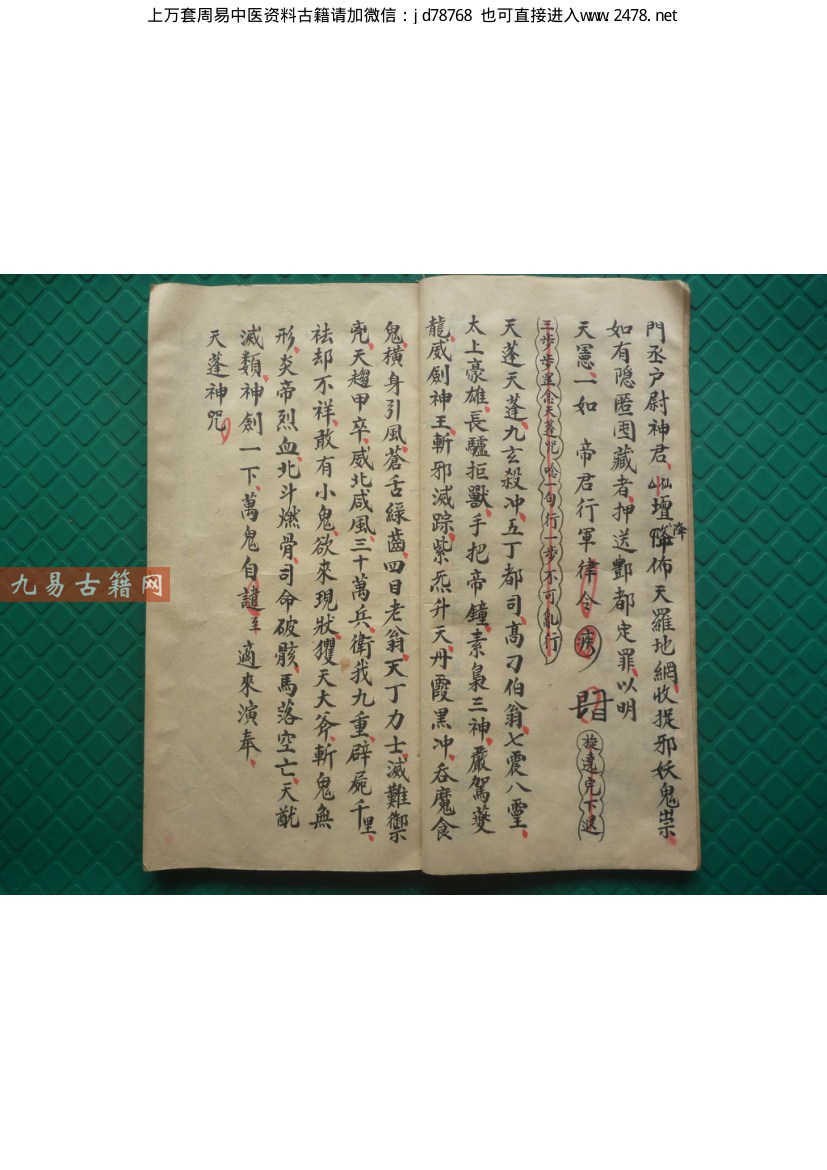 上万套周易中医资料古籍请加微信：jd78768 也可直接进入www.2478.net
門丞户尉神君壇降佈天羅地網收捉邪妖鬼祟
降
如有隐匿囤藏者押送酆都定罪以明
天憲一如 帝君行軍律令
旋遶完下退
三步步罡念天蓬咒唸一句行一步不可亂行
天蓬天蓬九玄殺冲五丁都司髙刁伯翁七震八靈
太上豪雄長驢拒獸手把帝鐘素梟三神嚴駕夔
龍威劍神王斬邪滅踪紫炁升天丹霞黑冲吞魔食
鬼橫身引風蒼舌緑齒四目老翁天丁力士滅難禦
兇天趨甲卒威北咸風三十萬兵衛我九重辟屍千里
祛却不祥敢有小鬼欲來現狀玃天大斧斬鬼無
形炎帝烈血北斗燃骨司命破骸馬落空亡天猷
滅類神劍一下萬鬼自譴至適來演奉
天蓬神咒
九易古籍网